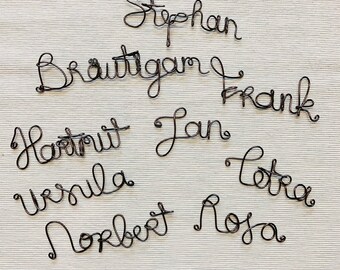 Stephan
Bräutigam
Frank
Hartmut Jan
Ursula
Petra
Norbert Rosa